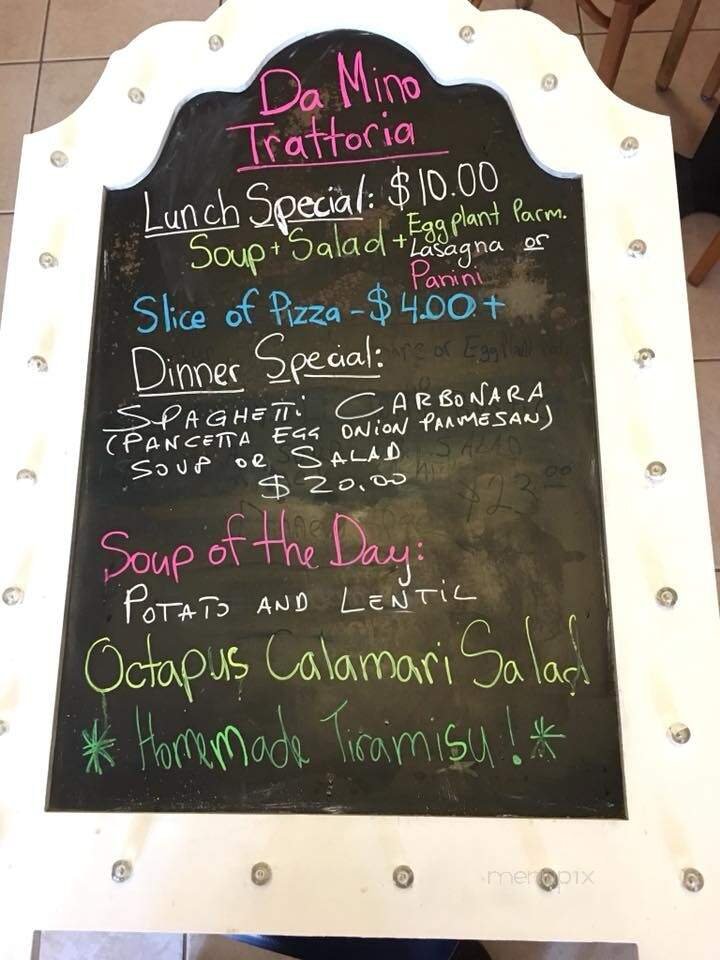 Da Mino
Trattoria
Lunch Special: $10.00
Soup + Salad + Eggplant Parm.
Lasagna or
Panini
Slice of Pizza - $4.00+
Dinner Special:
SPAGHETTI CARBONARA
(PANCETTA EGG ONION PARMESAN)
SOUP OR SALAD
$20.00
Soup of the Day:
POTATO AND LENTIL
Octapus Calamari Salad
* Homemade Tiramisu! *